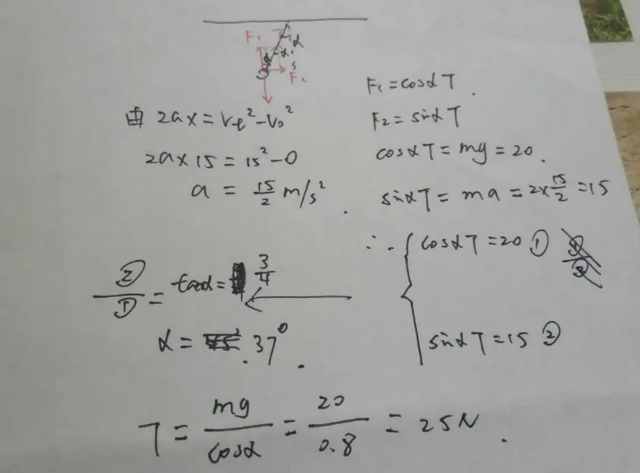 F₁ T α
F₂
由 2ax = Vt² - V0²
2a×15 = 15² - 0
a = 15/2 m/s²
F₁ = cosα T.
F₂ = sinα T
cosα T = mg = 20.
sinα T = ma = 2×15/2 = 15
∴ { cosα T = 20 ①
sinα T = 15 ②
②/① = tanα = 3/4
α = 37°.
T = mg/cosα = 20/0.8 = 25N.